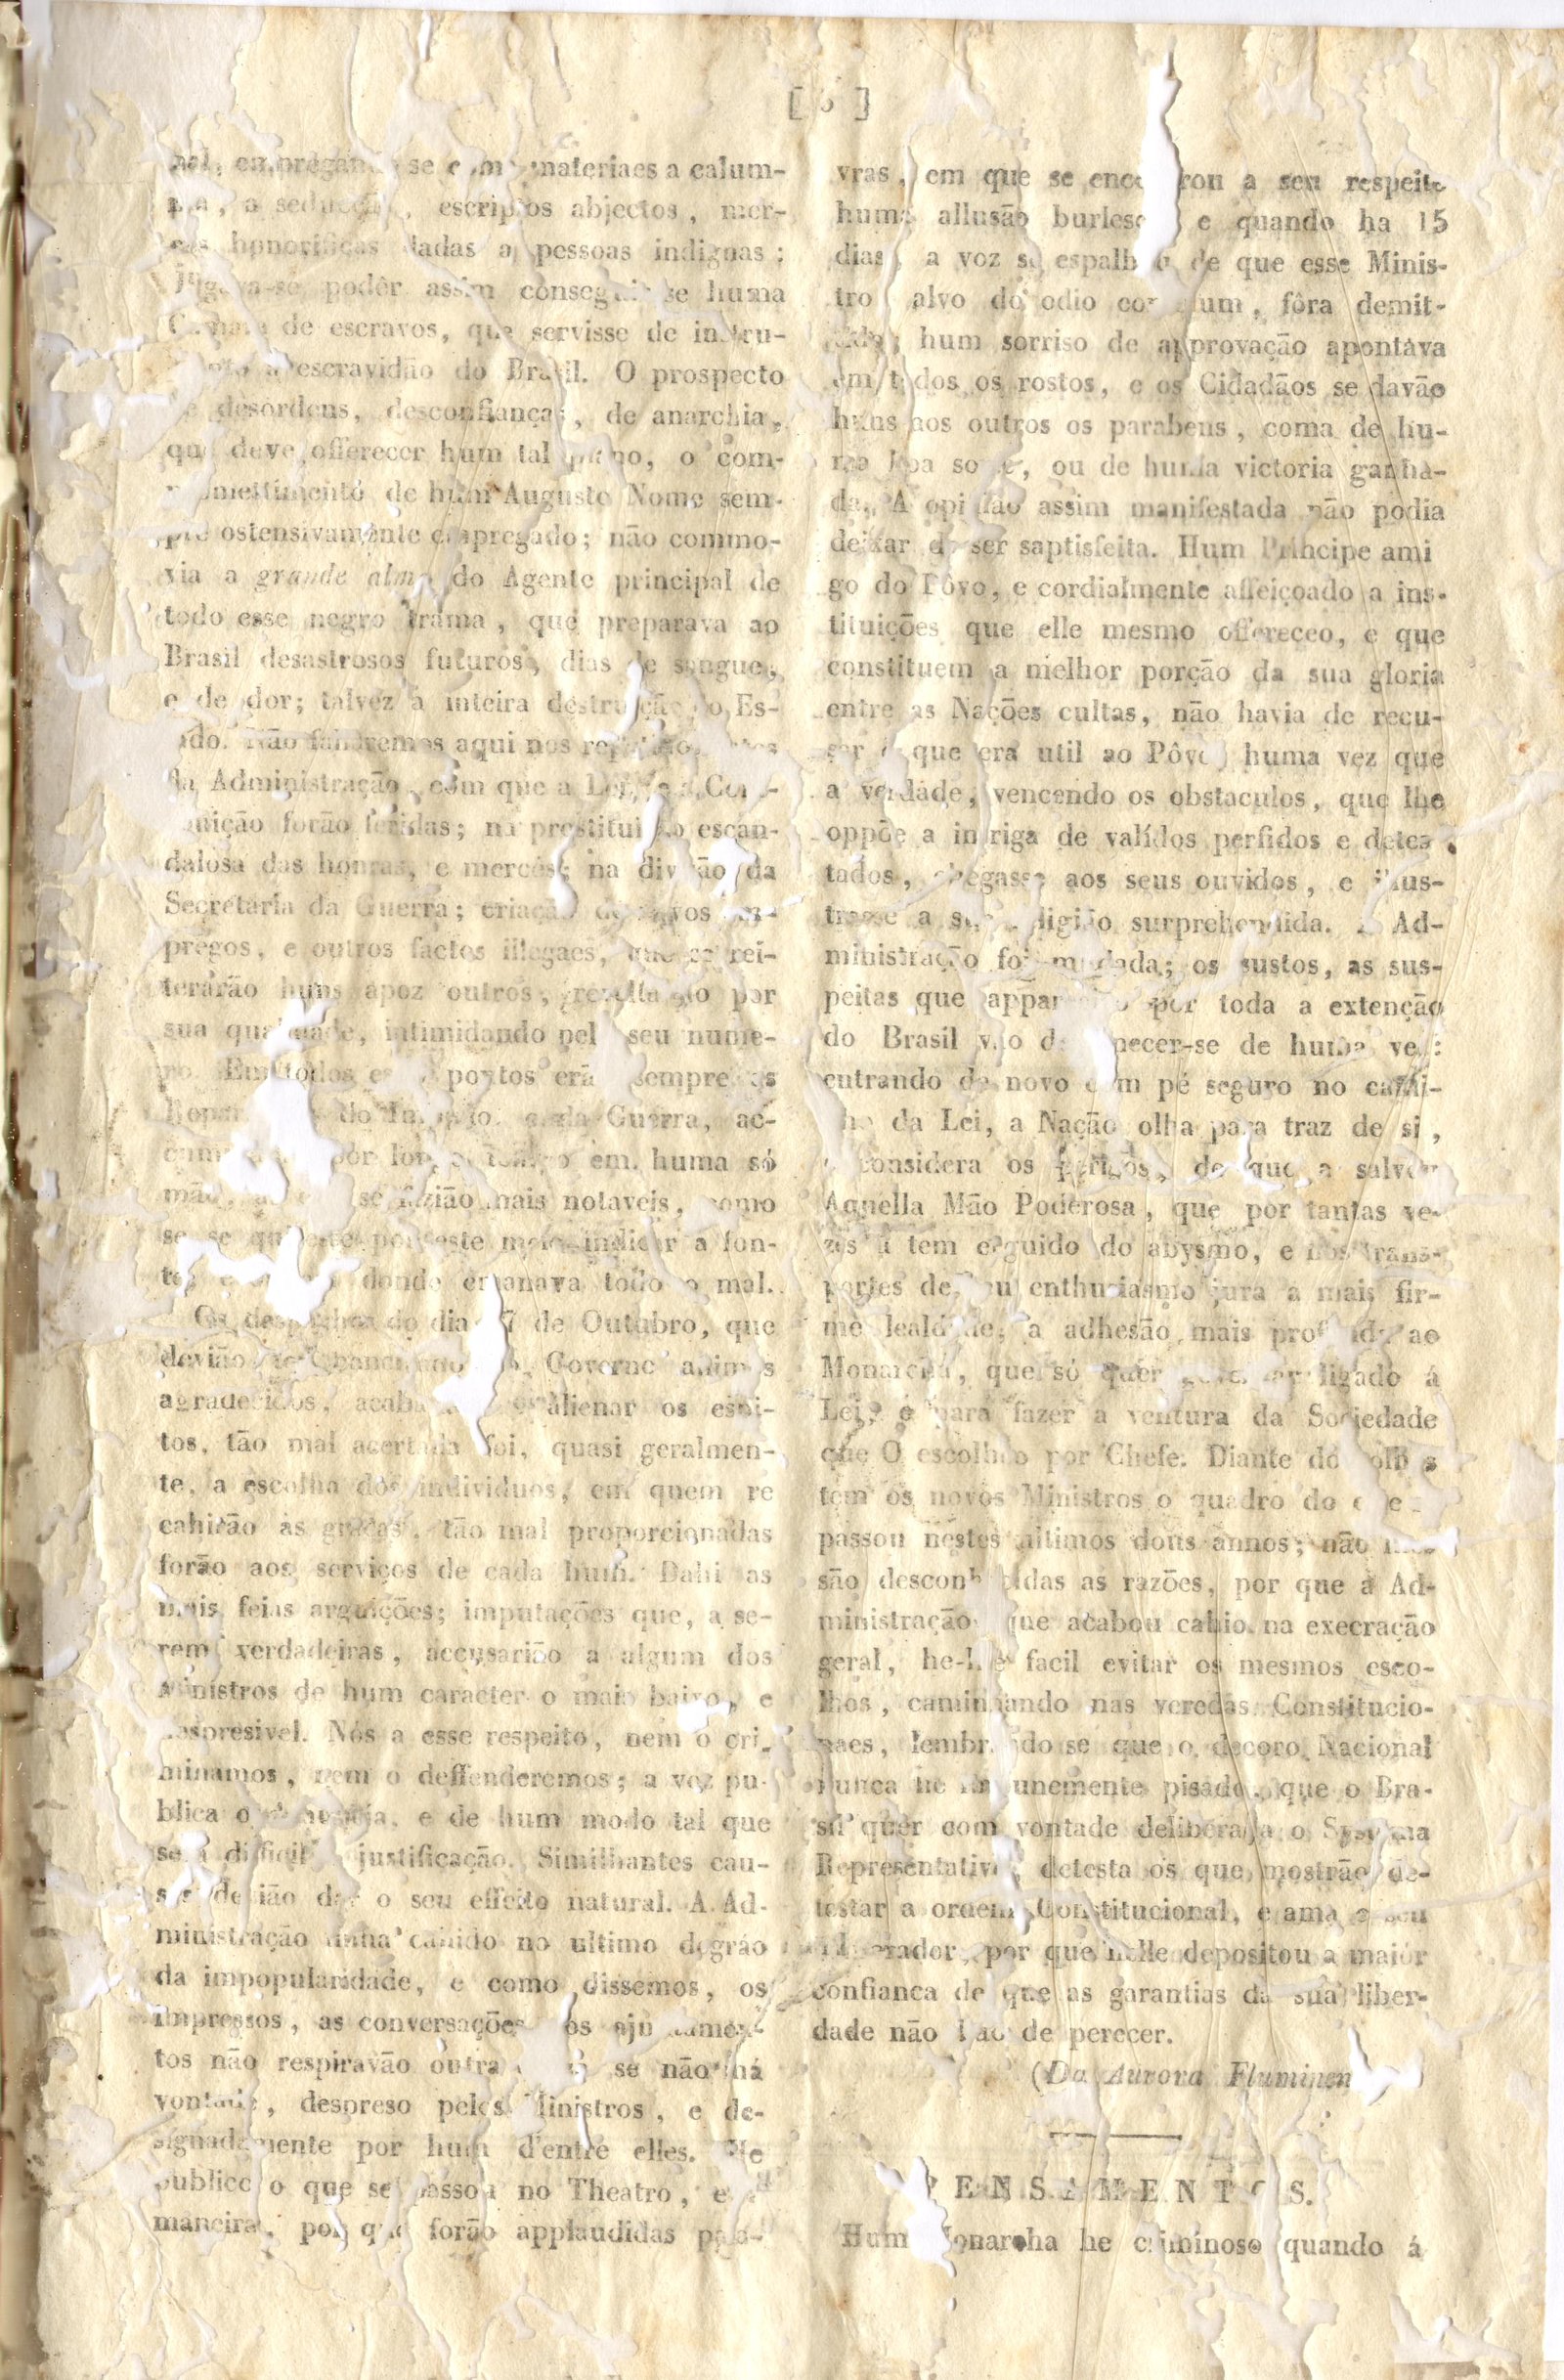 se materiaes a calum-
escriptos abjectos, mer-
honorificas dadas a pessoas indignas;
podêr assim conseguir-se huma
de escravos, que servisse de instru-
escravidão do Brasil. O prospecto
desordens, desconfianças, de anarchia,
que deve offerecer hum tal plano, o com-
de hum Augusto Nome sem-
pre ostensivamente empregado; não commo-
via a grande alma do Agente principal de
todo esse negro trama, que preparava ao
Brasil desastrosos futuros, dias de sangue,
e de dor; talvez a inteira destruição do Es-
tado. Não fallaremos aqui nos
da Administração, com que a Lei, e a
forão feridas; na prostituição escan-
dalosa das honras, e mercês; na divisão da
Secretaria da Guerra; criação de novos em-
pregos, e outros factos illegaes, que se rei-
terárão huns apoz outros,
sua qualidade, intimidando pelo seu nume-
ro. Em todos pontos erã sempre
do da Guerra, ac-
por longo tempo em huma só
mão, se fazião mais notaveis, como
se se por este meio indicar a fon-
te donde emanava todo o mal.
Os despachos do dia de Outubro, que
devião Governo animos
agradecidos, alienar os espi-
tos, tão mal acertada foi, quasi geralmen-
te, a escolha dos individuos, em quem re
cahirão as graças, tão mal proporcionadas
forão aos serviços de cada hum. Dahi as
mais feias arguições; imputações que, a se-
rem verdadeiras, accusarião a algum dos
Ministros de hum caracter o mais baixo, e
despresivel. Nós a esse respeito, nem o cri-
minamos, nem o deffenderemos; a voz pu-
blica o e de hum modo tal que
será difficil justificação. Similhantes cau-
sas devião dar o seu effeito natural. A Ad-
ministração tinha cahido no ultimo degráo
da impopularidade, e como dissemos, os
impressos, as conversações, os ajuntamen-
tos não respiravão outra se não má
vontade, despreso pelos Ministros, e de-
signadamente por hum d'entre elles. He
publico o que se passou no Theatro, e a
maneira, por que forão applaudidas pala-
vras, em que se encontrou a seu respeito
huma allusão burlesca e quando ha 15
dias, a voz se espalhou de que esse Minis-
tro alvo do odio commum, fôra demit-
tido; hum sorriso de approvação apontava
em todos os rostos, e os Cidadãos se davão
huns aos outros os parabens, coma de hu-
ma boa sorte, ou de huma victoria ganha-
da. A opinião assim manifestada não podia
deixar de ser saptisfeita. Hum Principe ami
go do Pôvo, e cordialmente affeiçoado a ins-
tituições que elle mesmo offereceo, e que
constituem a melhor porção da sua gloria
entre as Nações cultas, não havia de recu-
sar o que era util ao Pôvo, huma vez que
a verdade, vencendo os obstaculos, que lhe
oppõe a intriga de valídos perfidos e detes
tados, chegasse aos seus ouvidos, e illus-
trasse a sua religião surprehendida. A Ad-
ministração foi mudada; os sustos, as sus-
peitas que por toda a extenção
do Brasil vão desvanecer-se de huma vez:
entrando de novo com pé seguro no cami-
nho da Lei, a Nação olha para traz de si,
e considera os perigos, de que a salvou
Aquella Mão Poderosa, que por tantas ve-
zes a tem erguido do abysmo, e nos trans-
portes de seu enthusiasmo jura a mais fir-
me lealdade, a adhesão mais profunda ao
Monarcha, que só quer governar ligado á
Lei, e para fazer a ventura da Sociedade
que O escolheo por Chefe. Diante dos olhos
tem os novos Ministros o quadro do que
passou nestes ultimos dous annos; não lhes
são desconhecidas as razões, por que a Ad-
ministração que acabou cahio na execração
geral, he-lhe facil evitar os mesmos esco-
lhos, caminhando nas veredas Constitucio-
naes, lembrando se que o decoro Nacional
nunca he impunemente pisado, que o Bra-
sil quer com vontade deliberada o Systema
Representativo, detesta os que mostrão de-
testar a ordem Constitucional, e ama o seu
Imperador, por que nelle depositou a maior
confianca de que as garantias da sua liber-
dade não hão de perecer.
(Da Aurora Fluminen
PENSAMENTOS.
Hum Monarcha he criminoso quando á